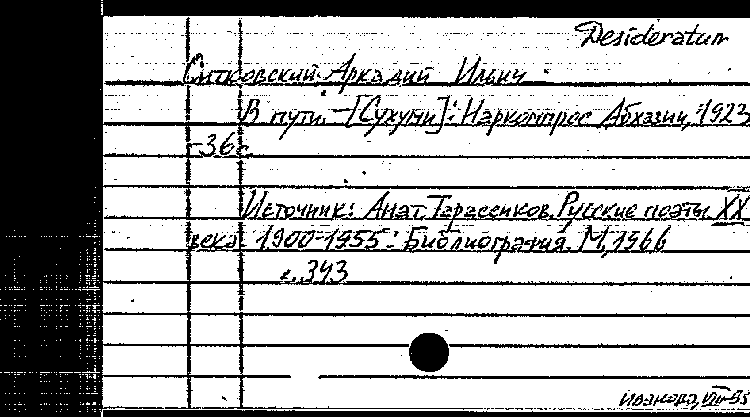 Desideratum
Ситковский Аркадий Ильич
В пути. -[Сухуми]: Наркомпрос Абхазии, 1923
-36с.
Источник: Анат. Тарасенков. Русские поэты XX
века. 1900-1955: Библиография. М, 1966
с. 343
Иванова, VIII-95